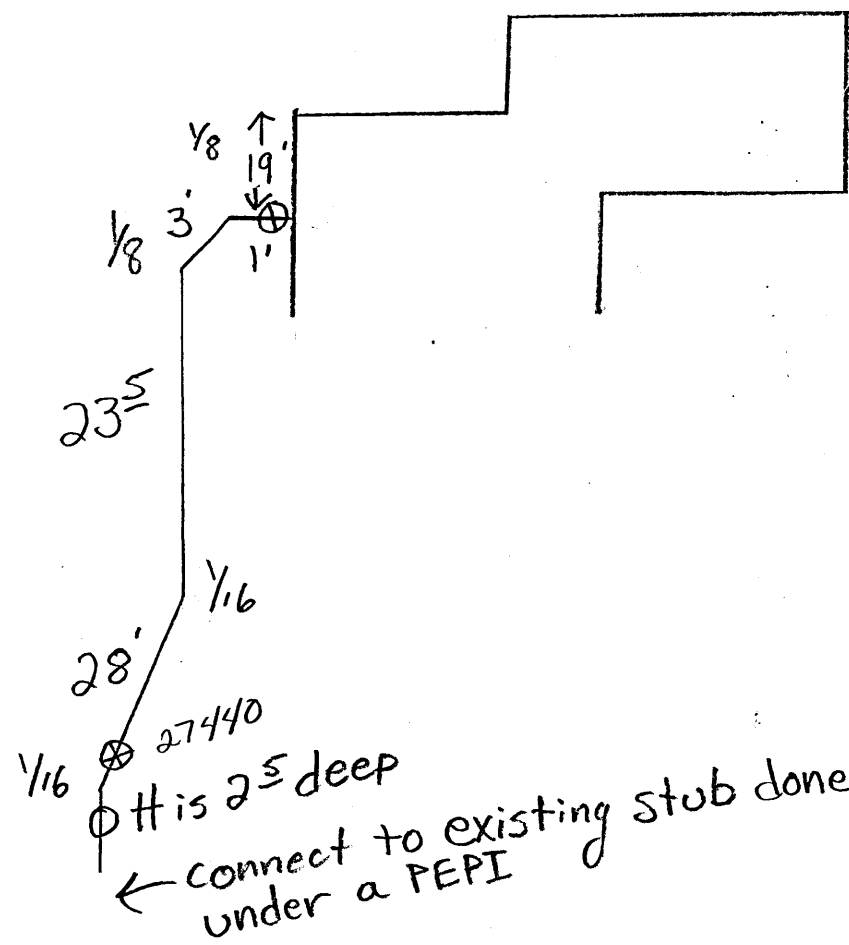 1/8
19'
3'
1/8
1'
23 5
1/16
28'
27440
1/16
H is 2 5 deep
connect to existing stub done
under a PEPI